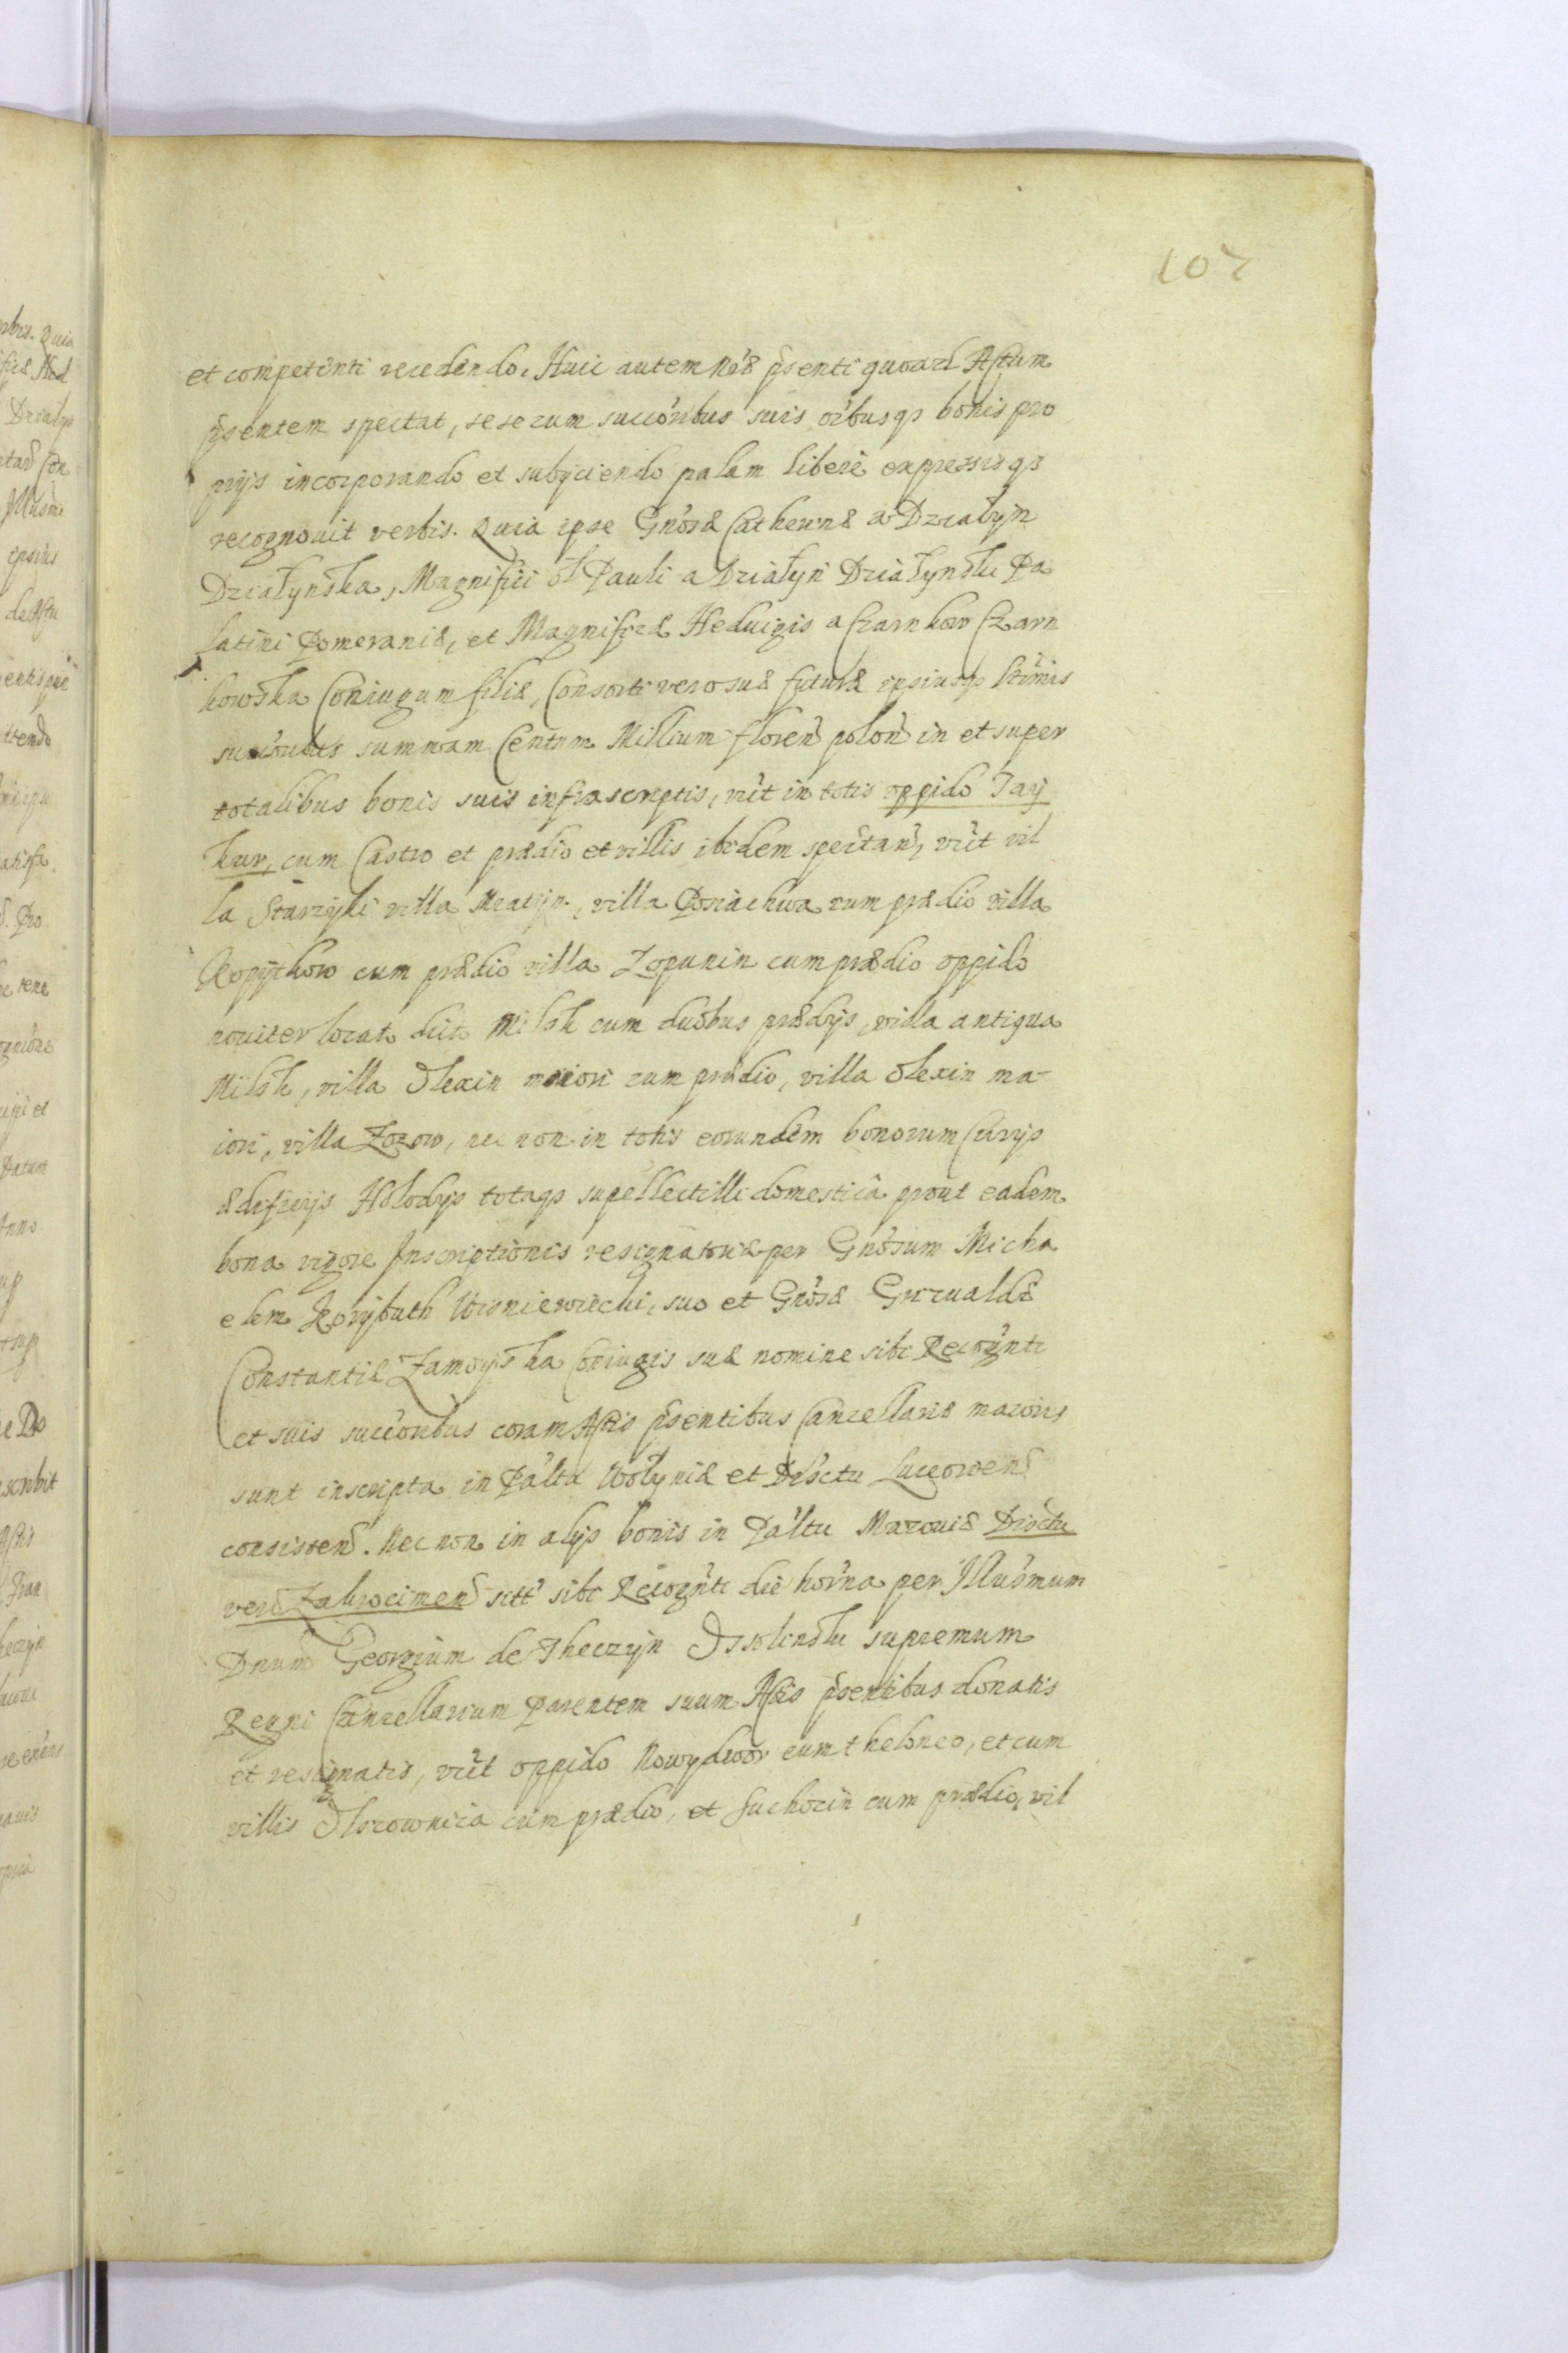 107
et competenti recedendo. Huic autem Nrae pñsenti quoad Actum
pñsentem spectat, sese cum succõribus suis oĩbusqȝ bonis pro
prijs incorporando et subijciendo palam liberè expressisqȝ
recognouit verbis. Quia ipse Gñosae Catherinae a Działyn
Działynska, Magnifici olĩ Pauli a Działyn Działynski Pa
latini Pomeraniae, et Magnificae Heduigis a Czarnkow Czarn
kowska Coniugum filiae, Consorti vero suae futurae ipsiusqȝ ltimis
succõribus summam Centum Millium floreñ poloñ in et super
totalibus bonis suis infrascriptis, vĩt in totis oppido Tay
kur, cum Castro et praedio et villis ibidem spectañ, vĩt vil
la Starzyki villa Mratyn, villa Posiachwa cum praedio villa
Kopytkow cum praedio villa Zopunin cum praedio oppido
nouiter locato dicto Milsk cum duobus praedijs, villa antiqua
Milsk, villa Olexin maiori cum praedio, villa Olexin ma-
iori, villa Zozow, nec non in totis eorundem bonorum Curijs
aedificijs Holodijs totaqȝ supellectilli domesticâ prout eadem
bona vigore Inscriptionis resignatoriae per Gñosum Micha
elem Korybuth Wisniewiecki, suo et Gñosae Grizualdae
Constantiae Zamoyska Coniugis suae nomine sibi Recogñti
et suis succõribus coram Actis pñsentibus Cancellariae maioris
sunt inscripta in Pãltu Wołyniae et Dĩsctu Luceorieñ
consisteñ. Nec non in alijs bonis in Pãltu Mazouiae Disctu
vero Zakrocimeñ sitĩ sibi Recogñti die hoĩrna per Illũsmum
Dnum Georgium de Theczyn Ossolinski supremum
Regni Cancellarium Parentem suum Actis pñsentibus donatis
et resignatis, vĩt oppido Nowydwor cum theloneo, et cum
villis Okrownica cum praedio, et Suchocin cum praedio, vil